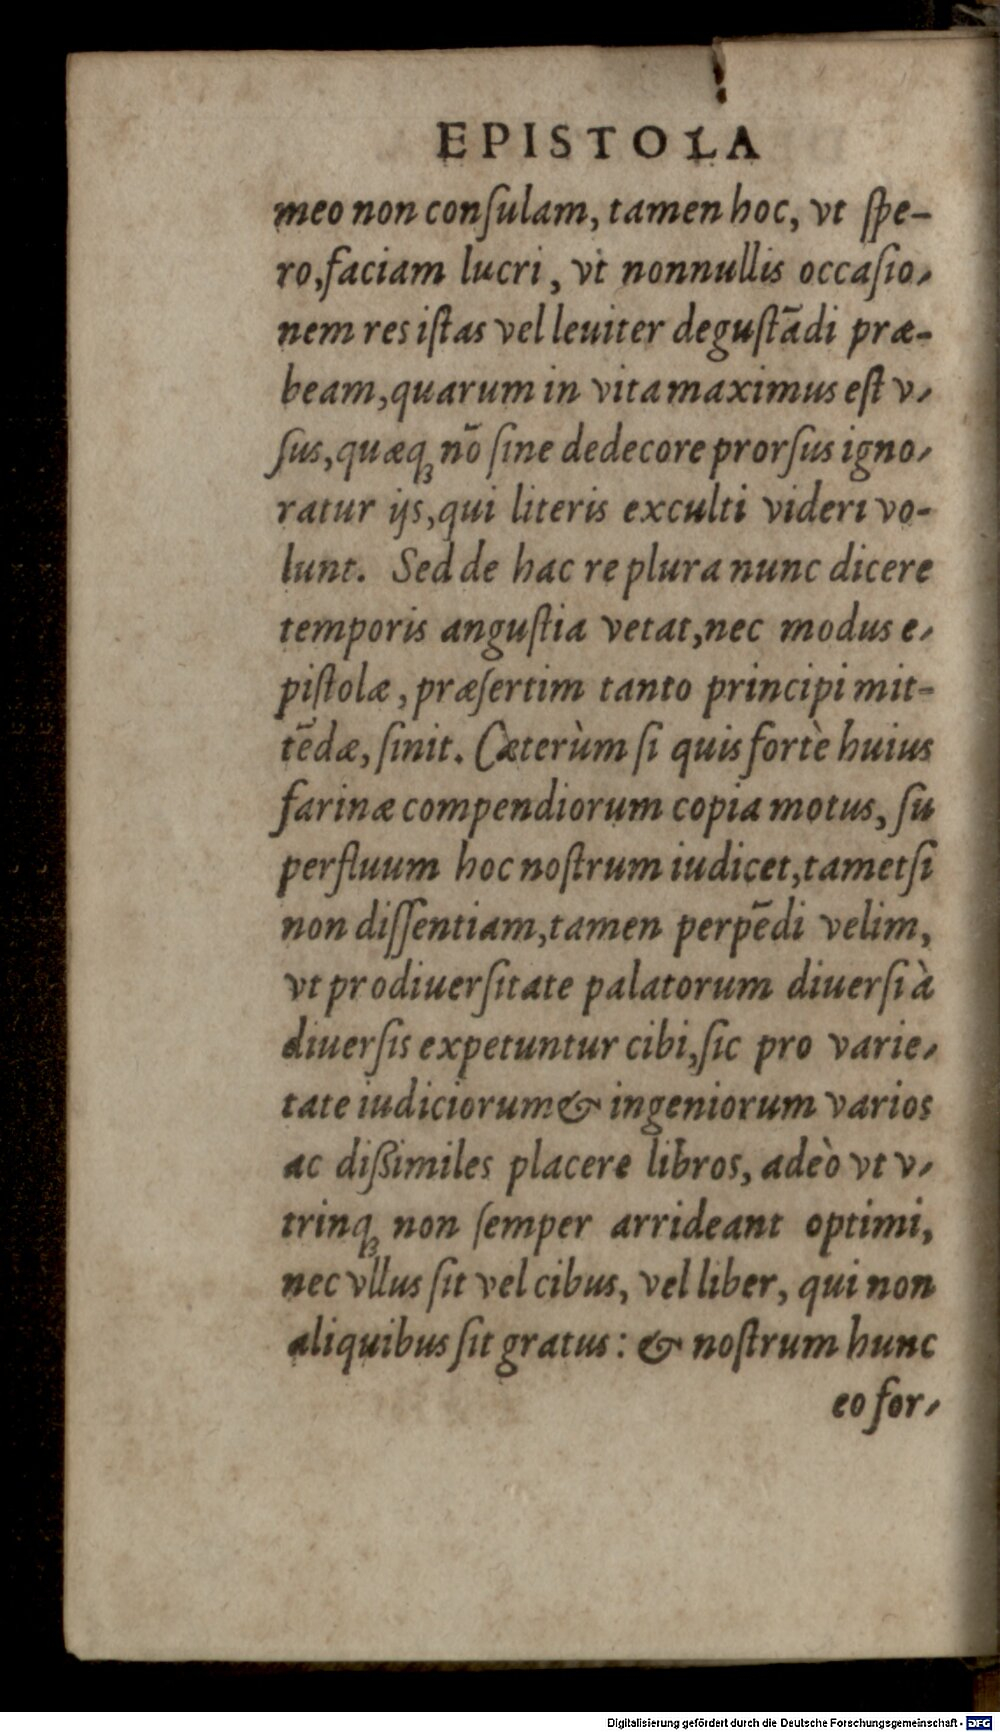 EPISTOLA
meo non conſulam, tamen hoc, vt ſpe-
ro, faciam lucri, vt nonnullis occaſio-
nem res iſtas vel leuiter deguſtādi præ-
beam, quarum in vita maximus eſt v-
ſus, quæq; nō ſine dedecore prorſus igno-
ratur ijs, qui literis exculti videri vo-
lunt. Sed de hac re plura nunc dicere
temporis anguſtia vetat, nec modus e-
piſtolæ, præſertim tanto principi mit-
tēdæ, ſinit. Cæterùm ſi quis fortè huius
farinæ compendiorum copia motus, ſu
perfluum hoc noſtrum iudicet, tametſi
non diſſentiam, tamen perpēdi velim,
vt pro diuerſitate palatorum diuerſi à
diuerſis expetuntur cibi, ſic pro varie-
tate iudiciorum & ingeniorum varios
ac dißimiles placere libros, adeò vt v-
trinq; non ſemper arrideant optimi,
nec vllus ſit vel cibus, vel liber, qui non
aliquibus ſit gratus: & noſtrum hunc
eo for-
Digitalisierung gefördert durch die Deutsche Forschungsgemeinschaft - DFG